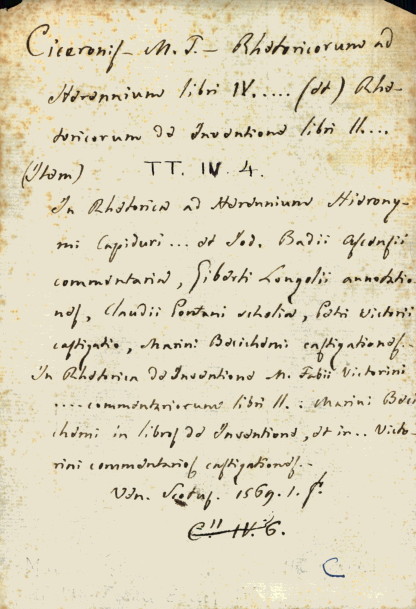 Ciceronis - M. T. - Rhetoricorum ad
Herennium libri IV..... (et) Rhe-
toricorum de Inventione libri II....
(Item) TT. IV. 4.
In Rhetorica ad Herennium Hierony-
mi Capiduri ... et Jod. Badii Ascensii
commentaria, Giberti Longolii annotatio
nes, Claudii Pontani scholia, Petri Victorii
castigatio, Marini Becichemi castigationes..
In Rhetorica de Inventione M. Fabii Victorini
.... commentariorum libri II. : Marini Beci
chemi in libros de Inventione, et in .. Victo-
rini commentarios castigationes..
Ven. Scotus. 1569. 1. f.
C. II IV. 6.
C